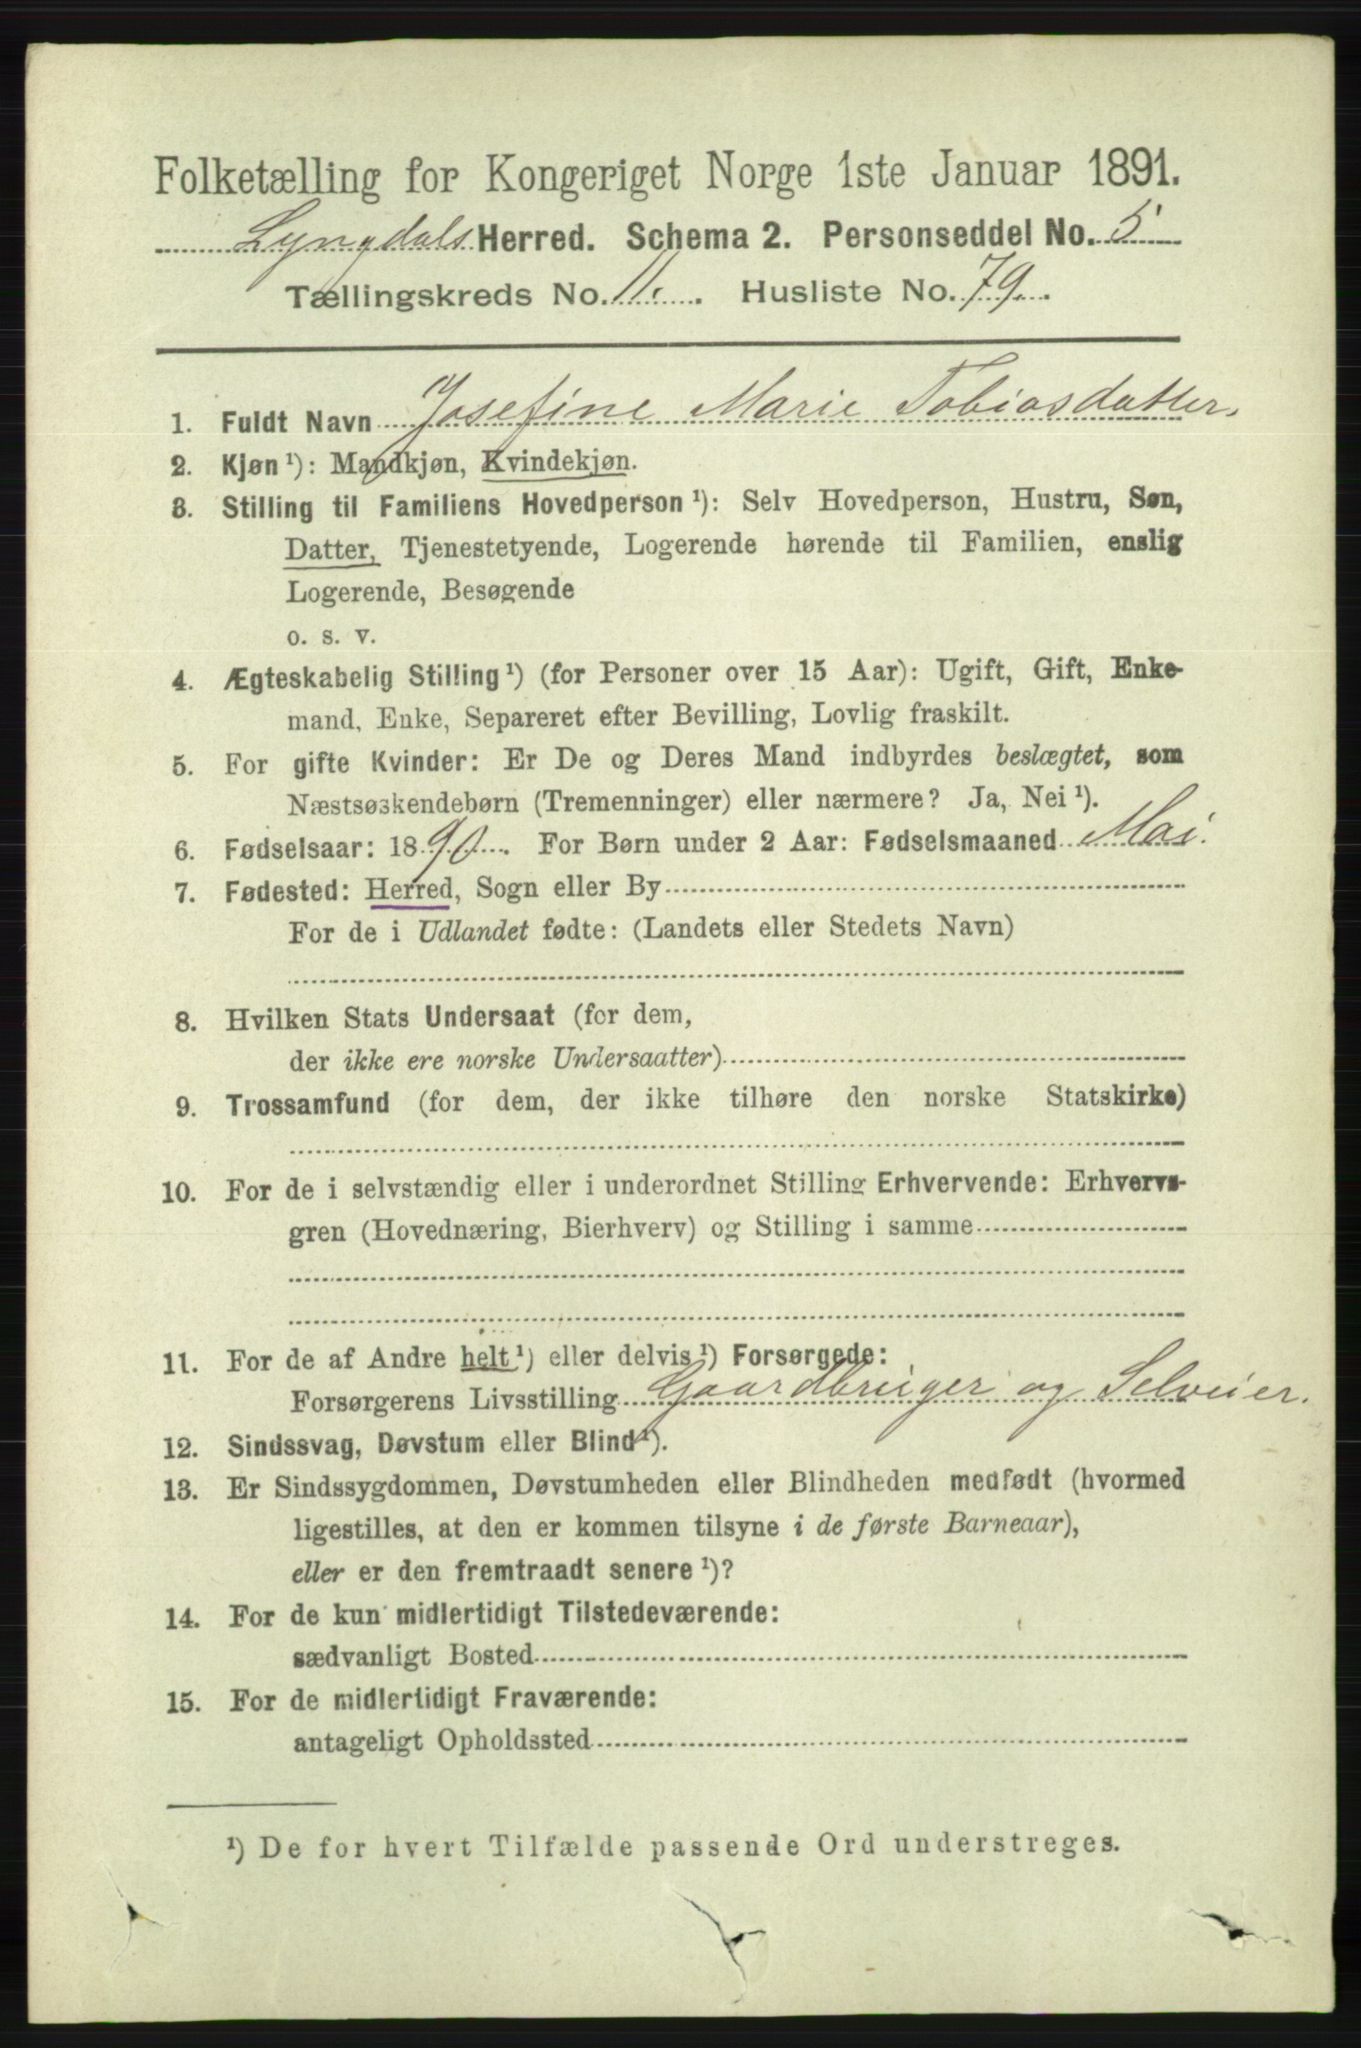 Folketælling for Kongeriget Norge 1ste Januar 1891.
Lyngdals Herred. Schema 2. Personseddel No. 5
Tællingskreds No. 11. Husliste No. 79.
1. Fuldt Navn Josefine Marie Tobiasdatter.
2. Kjøn¹): Mandkjøn, Kvindekjøn.
3. Stilling til Familiens Hovedperson¹): Selv Hovedperson, Hustru, Søn,
Datter, Tjenestetyende, Logerende hørende til Familien, enslig
Logerende, Besøgende
o. s. v.
4. Ægteskabelig Stilling¹) (for Personer over 15 Aar): Ugift, Gift, Enke-
mand, Enke, Separeret efter Bevilling, Lovlig fraskilt.
5. For gifte Kvinder: Er De og Deres Mand indbyrdes beslægtet, som
Næstsøskendebørn (Tremenninger) eller nærmere? Ja, Nei¹).
6. Fødselsaar: 1890. For Børn under 2 Aar: Fødselsmaaned Mai.
7. Fødested: Herred, Sogn eller By
For de i Udlandet fødte: (Landets eller Stedets Navn)
8. Hvilken Stats Undersaat (for dem,
der ikke ere norske Undersaatter)
9. Trossamfund (for dem, der ikke tilhøre den norske Statskirke)
10. For de i selvstændig eller i underordnet Stilling Erhvervende: Erhvervs-
gren (Hovednæring, Bierhverv) og Stilling i samme
11. For de af Andre helt¹) eller delvis¹) Forsørgede:
Forsørgerens Livsstilling Gaardbruger og Selveier.
12. Sindssvag, Døvstum eller Blind¹).
13. Er Sindssygdommen, Døvstumheden eller Blindheden medfødt (hvormed
ligestilles, at den er kommen tilsyne i de første Barneaar),
eller er den fremtraadt senere¹)?
14. For de kun midlertidigt Tilstedeværende:
sædvanligt Bosted
15. For de midlertidigt Fraværende:
antageligt Opholdssted
¹) De for hvert Tilfælde passende Ord understreges.